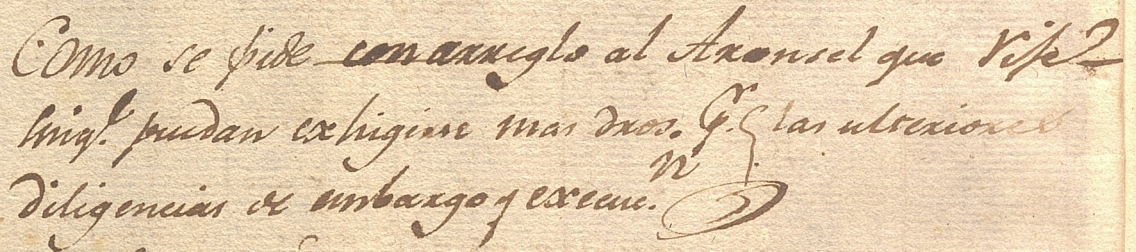 Como se pide con arreglo al Aransel que rije
sinq.e puedan exhigirse mas dros. q.e las ulteriores
diligencias de embargo y execu.n